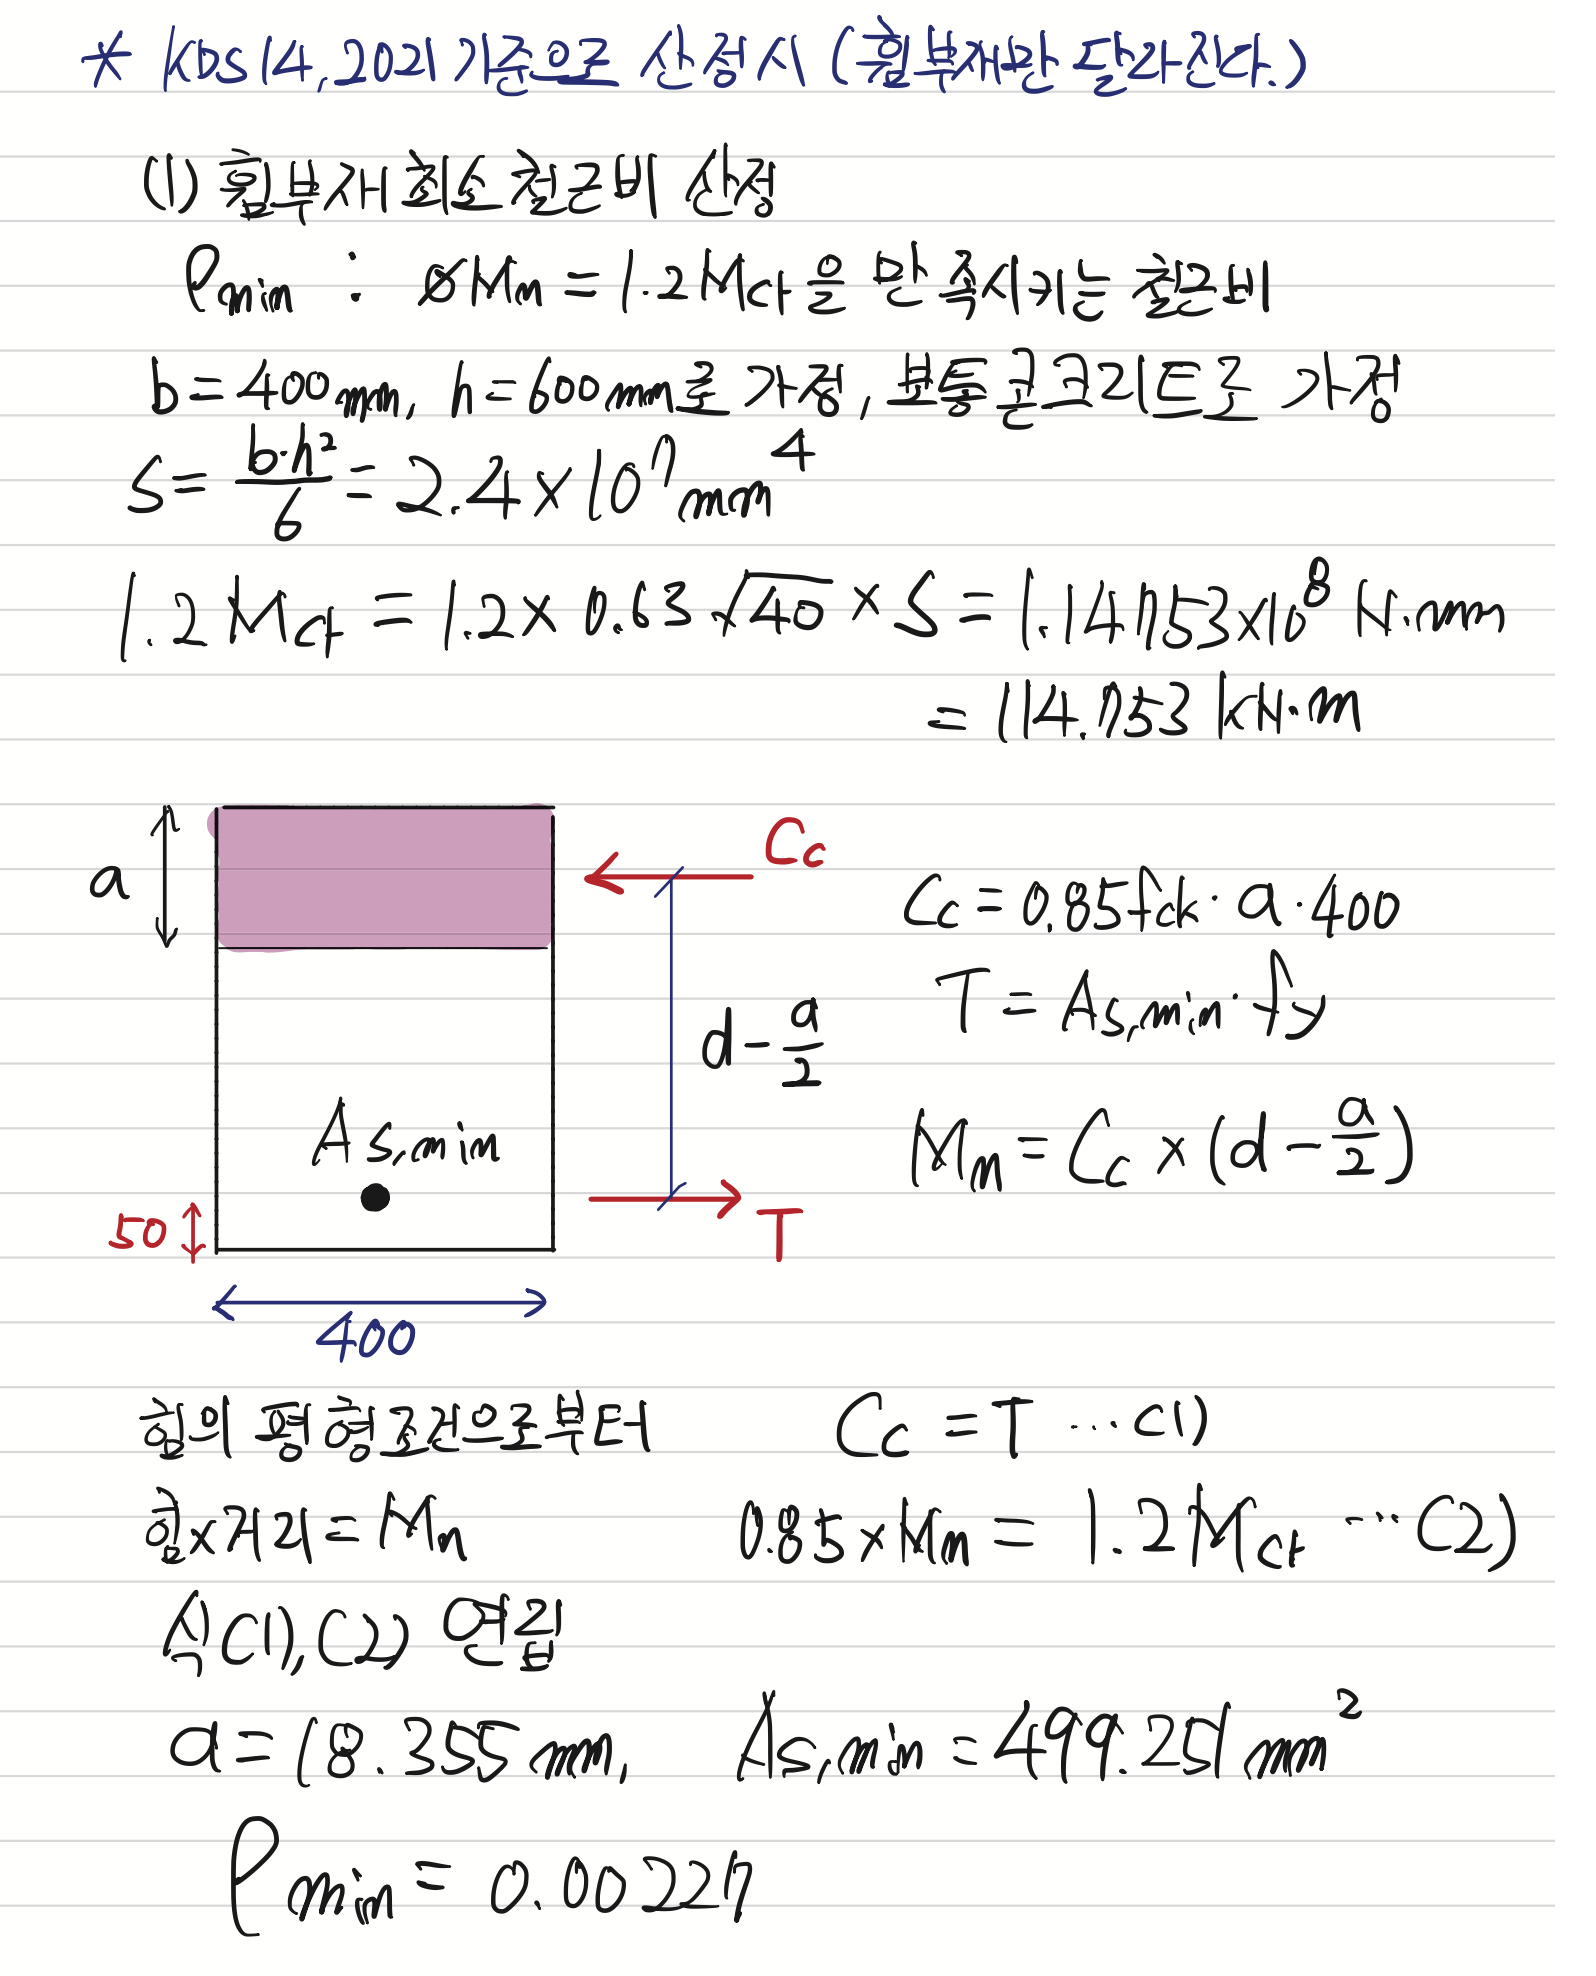 * KDS 14, 2021 기준으로 산정시 (휨부재만 달라진다.)
(1) 휨부재 최소철근비 산정
ρmin : ØMn = 1.2 Mcr을 만족시키는 철근비
b = 400mm, h = 600mm로 가정, 보통콘크리트로 가정
S = b·h²/6 = 2.4 × 10⁷ mm⁴
1.2 Mcr = 1.2 × 0.63 √40 × S = 1.14753×10⁸ N·mm
= 114.753 kN·m
Cc
a
Cc = 0.85fck · a · 400
T = As,min · fy
d - a/2
As,min
Mn = Cc × (d - a/2)
50
T
400
힘의 평형조건으로부터 Cc = T ... (1)
힘×거리 = Mn 0.85 × Mn = 1.2 Mcr ... (2)
식(1), (2) 연립
a = 18.355 mm, As,min = 499.251 mm²
ρmin = 0.00227